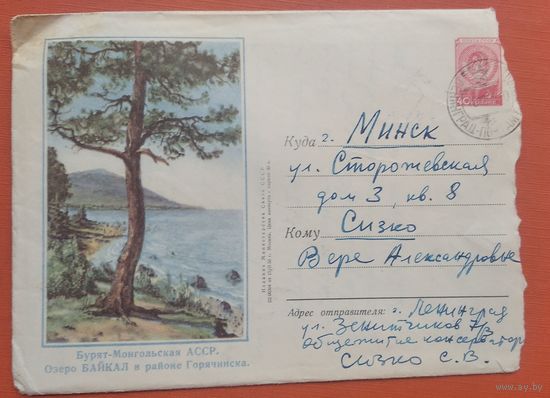 40 КОПЕЕК
Куда г. Минск
ул. Сторожевская
дом 3, кв. 8
Кому Сизко
Вере Александровне
Адрес отправителя: г. Ленинград
ул. Зенитчиков 7/3
общежитие консерватор
Сизко С.В.
Издание Министерства Связи СССР
Бурят-Монгольская АССР.
Озеро БАЙКАЛ в районе Горячинска.
www.ay.by